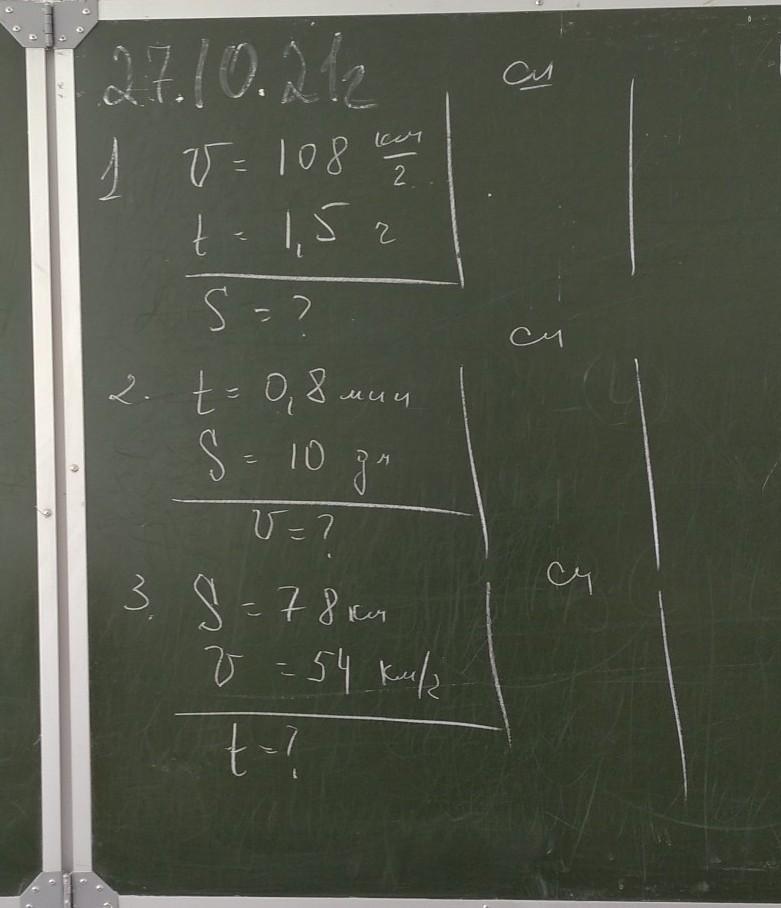 27.10.21г
СИ
1 υ = 108 км/г
t = 1,5 г
S = ?
СИ
2. t = 0,8 мин
S = 10 дм
υ = ?
СИ
3. S = 78 км
υ = 54 км/г
t = ?